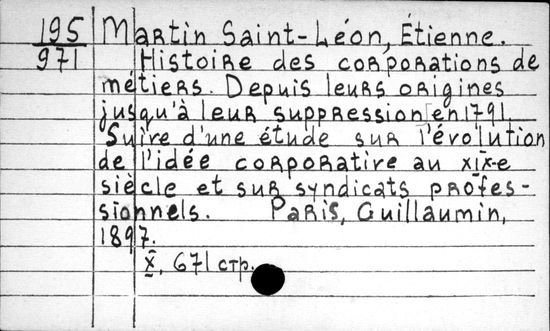 195 Martin Saint-Léon, Étienne.
971 Histoire des corporations de
métiers. Depuis leurs origines
jusqu'à leur suppression en 1791.
Suire d'une étude sur l'évolution
de l'idée corporatire au XIX-e
siècle et sur syndicats profes-
sionnels. Paris, Guillaumin,
1897.
X, 671 стр.